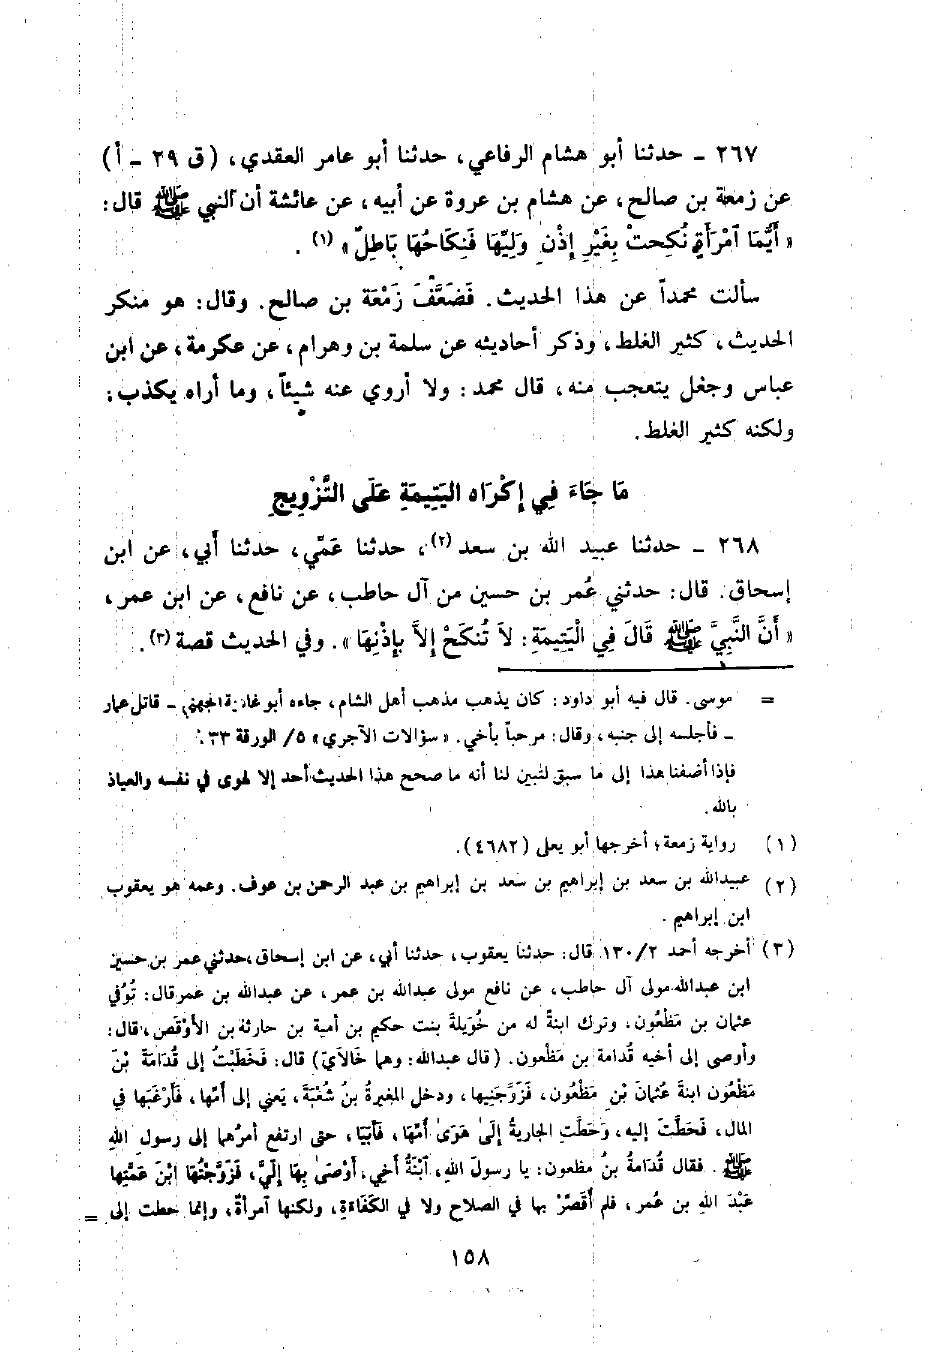 ٢٦٧ - حدثنا أبو هشام الرفاعي، حدثنا أبو عامر العقدي، (ق ٢٩ - أ)
عن زمعة بن صالح، عن هشام بن عروة عن أبيه، عن عائشة أن النبي ﷺ قال:
«أَيُّمَا آمْرَأَةٍ نُكِحتْ بِغَيْرِ إِذْنِ وَلِيِّهَا فَنِكَاحُهَا بَاطِلٌ» (١).
سألت محمداً عن هذا الحديث. فَضَعَّفَ زَمْعَة بن صالح. وقال: هو منكر
الحديث، كثير الغلط، وذكر أحاديثه عن سلمة بن وهرام، عن عكرمة، عن ابن
عباس وجعل يتعجب منه، قال محمد: ولا أروي عنه شيئاً، وما أراه يكذب:
ولكنه كثير الغلط.
مَا جَاءَ فِي إِكْرَاه اليَتِيمَةِ عَلَى التَّزْوِيجِ
٢٦٨ - حدثنا عبيد الله بن سعد (٢)، حدثنا عَمِّي، حدثنا أَبي، عن ابن
إسحاق. قال: حدثني عُمر بن حسين من آل حاطب، عن نافع، عن ابن عمر،
«أَنَّ النَّبِيَّ ﷺ قَالَ فِي الْيَتِيمَةِ: لاَ تُنكَحْ إِلاَّ بِإِذْنِهَا». وفي الحديث قصة (٣).
= موسى. قال فيه أبو داود: كان يذهب مذهب أهل الشام، جاءه أبو غادية الجهني - قاتل عمار
- فأجلسه إلى جنبه، وقال: مرحباً بأخي. «سؤالات الآجري» ٥/ الورقة ٣٣.
فإذا أضفنا هذا إلى ما سبق لتبين لنا أنه ما صحح هذا الحديث أحد إلا لهوى في نفسه والعياذ
بالله.
(١) رواية زمعة؛ أخرجها أبو يعلى (٤٦٨٢).
(٢) عبيدالله بن سعد بن إبراهيم بن سعد بن إبراهيم بن عبد الرحمن بن عوف. وعمه هو يعقوب
ابن إبراهيم.
(٣) أخرجه أحمد ١٣٠/٢ قال: حدثنا يعقوب، حدثنا أبي، عن ابن إسحاق، حدثني عمر بن حسين
ابن عبدالله مولى آل حاطب، عن نافع مولى عبدالله بن عمر، عن عبدالله بن عمر قال: تُوُفي
عثمان بن مَظْعُون، وترك ابنةً له من خُوَيلة بنت حكيم بن أمية بن حارثة بن الأوْقَص، قال:
وأوصى إلى أخيه قُدامة بن مَظْعون. (قال عبدالله: وهما خَالاَيَ) قال: فخَطَبْتُ إلى قُدَامَةَ بْنَ
مَظْعُون ابنةَ عُثمانَ بْنِ مَظْعُون، فَزَوَّجَنِيها، ودخل المغيرةُ بنُ شُعْبَة، يَعني إلى أُمِّها، فَأَرْغَبَها في
المال، فَحَطَّتْ إليه، وَحَطَّتِ الجاريةُ إِلَىٰ هَوَىٰ أُمِّهَا، فَأَبَيَا، حتى ارتفع أمرُهما إلى رسول الله
ﷺ. فقال قُدَامةُ بنُ مظعون: يا رسولَ اللهِ، آبْنَةُ أخي، أَوْصَىٰ بِهَا إِلَيَّ، فَزَوَّجْتُهَا ابْنَ عَمَّتِها
عَبْدَ اللهِ بن عُمر، فلم أُقَصِّرْ بها في الصلاح ولا في الكَفَاءَةِ، ولكنها آمرأةٌ، وإنما حطت إلى =
١٥٨